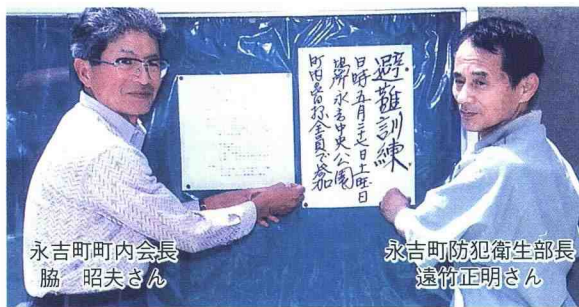 避難訓練
日時五月二十七日土曜日
場所永吉中央公園
町内皆様全員で参加
永吉町町内会長
脇 昭夫さん
永吉町防犯衛生部長
遠竹正明さん